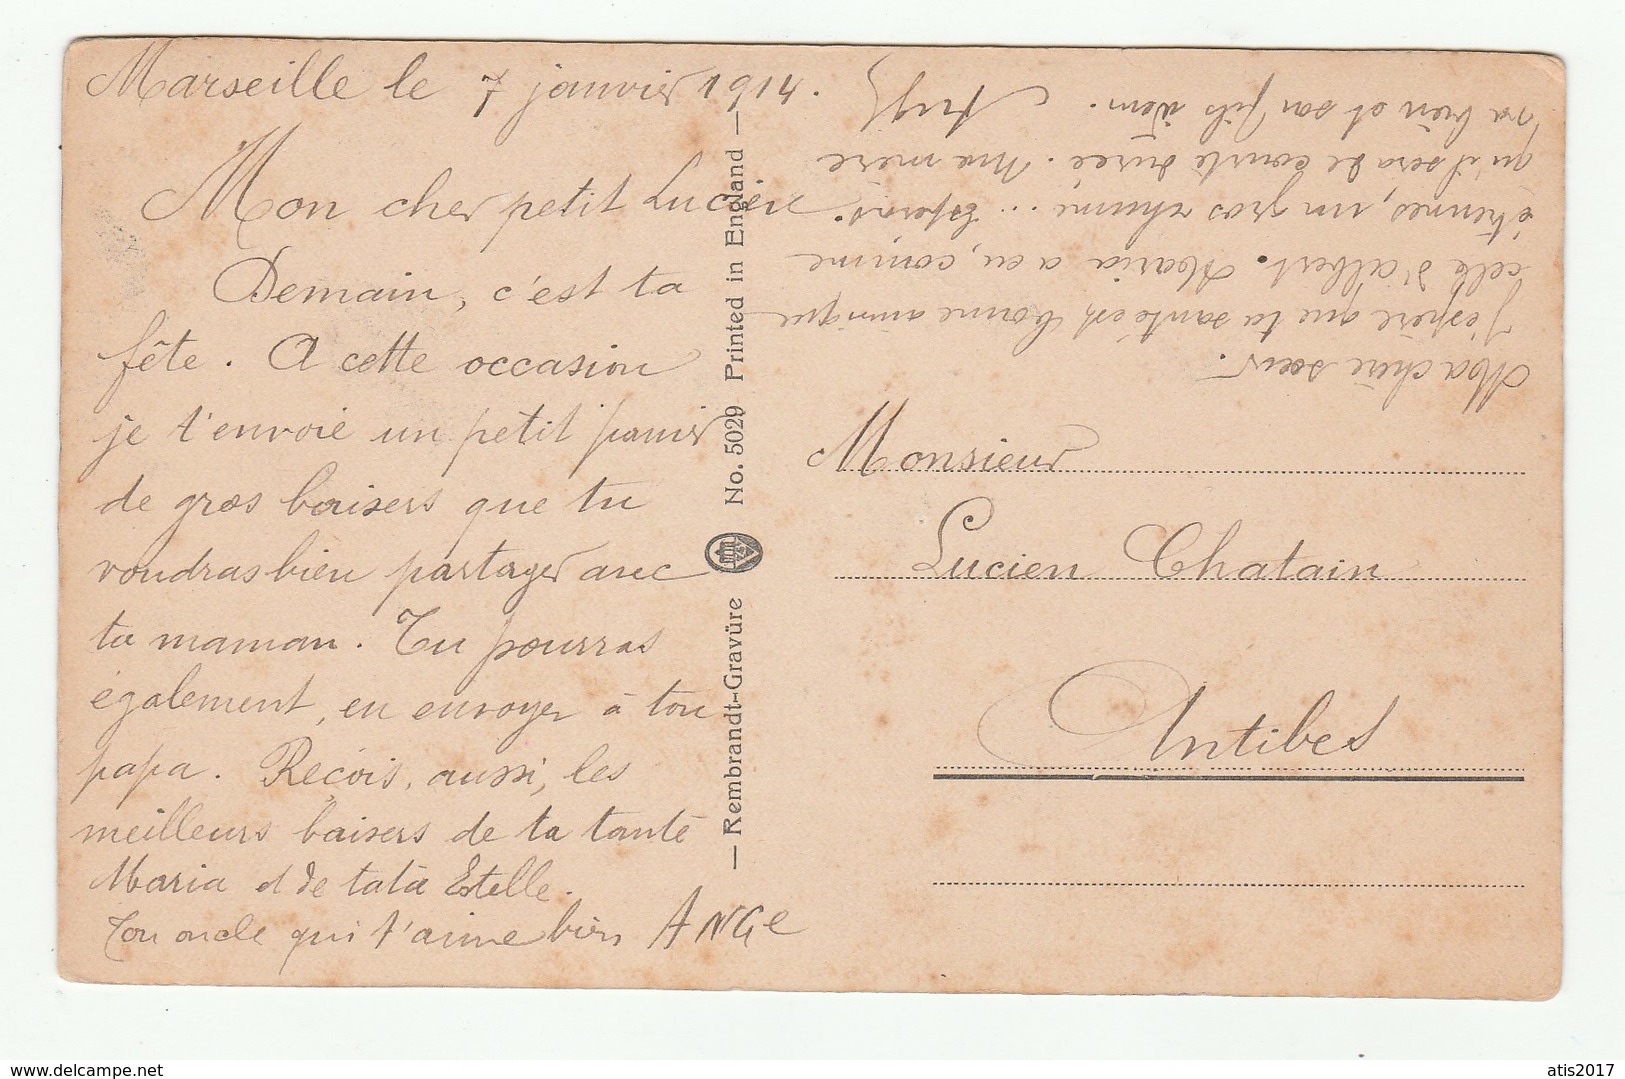 Marseille le 7 janvier 1914.
Mon cher petit Lucien
Demain, c'est ta
fête. A cette occasion
je t'envoie un petit panier
de gros baisers que tu
voudras bien partager avec
ta maman. Tu pourras
également, en envoyer à ton
papa. Reçois, aussi, les
meilleurs baisers de ta tante
Maria et de tata Estelle.
Ton oncle qui t'aime bien ANGe
— Rembrandt-Gravüre No. 5029 Printed in England —
Ma chère sœur.
J'espère que ta santé est bonne ainsi que
celle d'albert. Maria a eu, comme
étrennes, un gros rhume... Espérons
qu'il sera de courte durée. Ma mère
va bien et son fils idem.
Ange
Monsieur
Lucien Chatain
Antibes
http://www.delcampe.net
atis2017